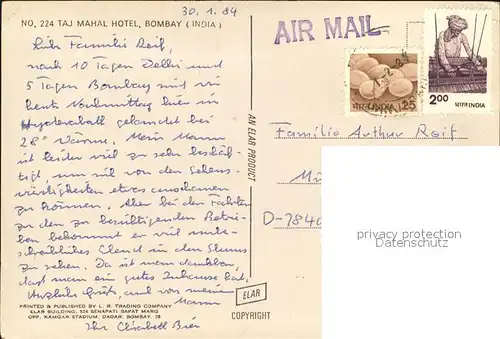 30.1.84
NO. 224 TAJ MAHAL HOTEL, BOMBAY (INDIA)
AIR MAIL
Liebe Familie Reif,
nach 10 Tagen Delhi und
5 Tagen Bombay sind wir
heute Vormittag hier in
Hyderabad gelandet bei
28° Wärme. Mein Mann
ist leider viel zu sehr beschäf-
tigt, um viel von den Sehens-
würdigkeiten etwas anschauen
zu können. Aber bei den Fahrten
zu den zu besichtigenden Betrie-
ben bekommt er viel unbe-
schreibliches Elend in den Slums
zu sehen. Da ist man dankbar,
daß man ein gutes Zuhause hat.
Herzliche Grüße, auch von meinem
Mann
Ihr Elisabeth Bier
PRINTED & PUBLISHED BY L. R. TRADING COMPANY
ELAR BUILDING, SENAPATI BAPAT MARG
OPP. KAMGAR STADIUM, DADAR, BOMBAY. 28
AN ELAR PRODUCT
ELAR
COPYRIGHT
भारत INDIA 25
2.00 भारत INDIA
Familie Arthur Reif
D-7840
privacy protection
Datenschutz